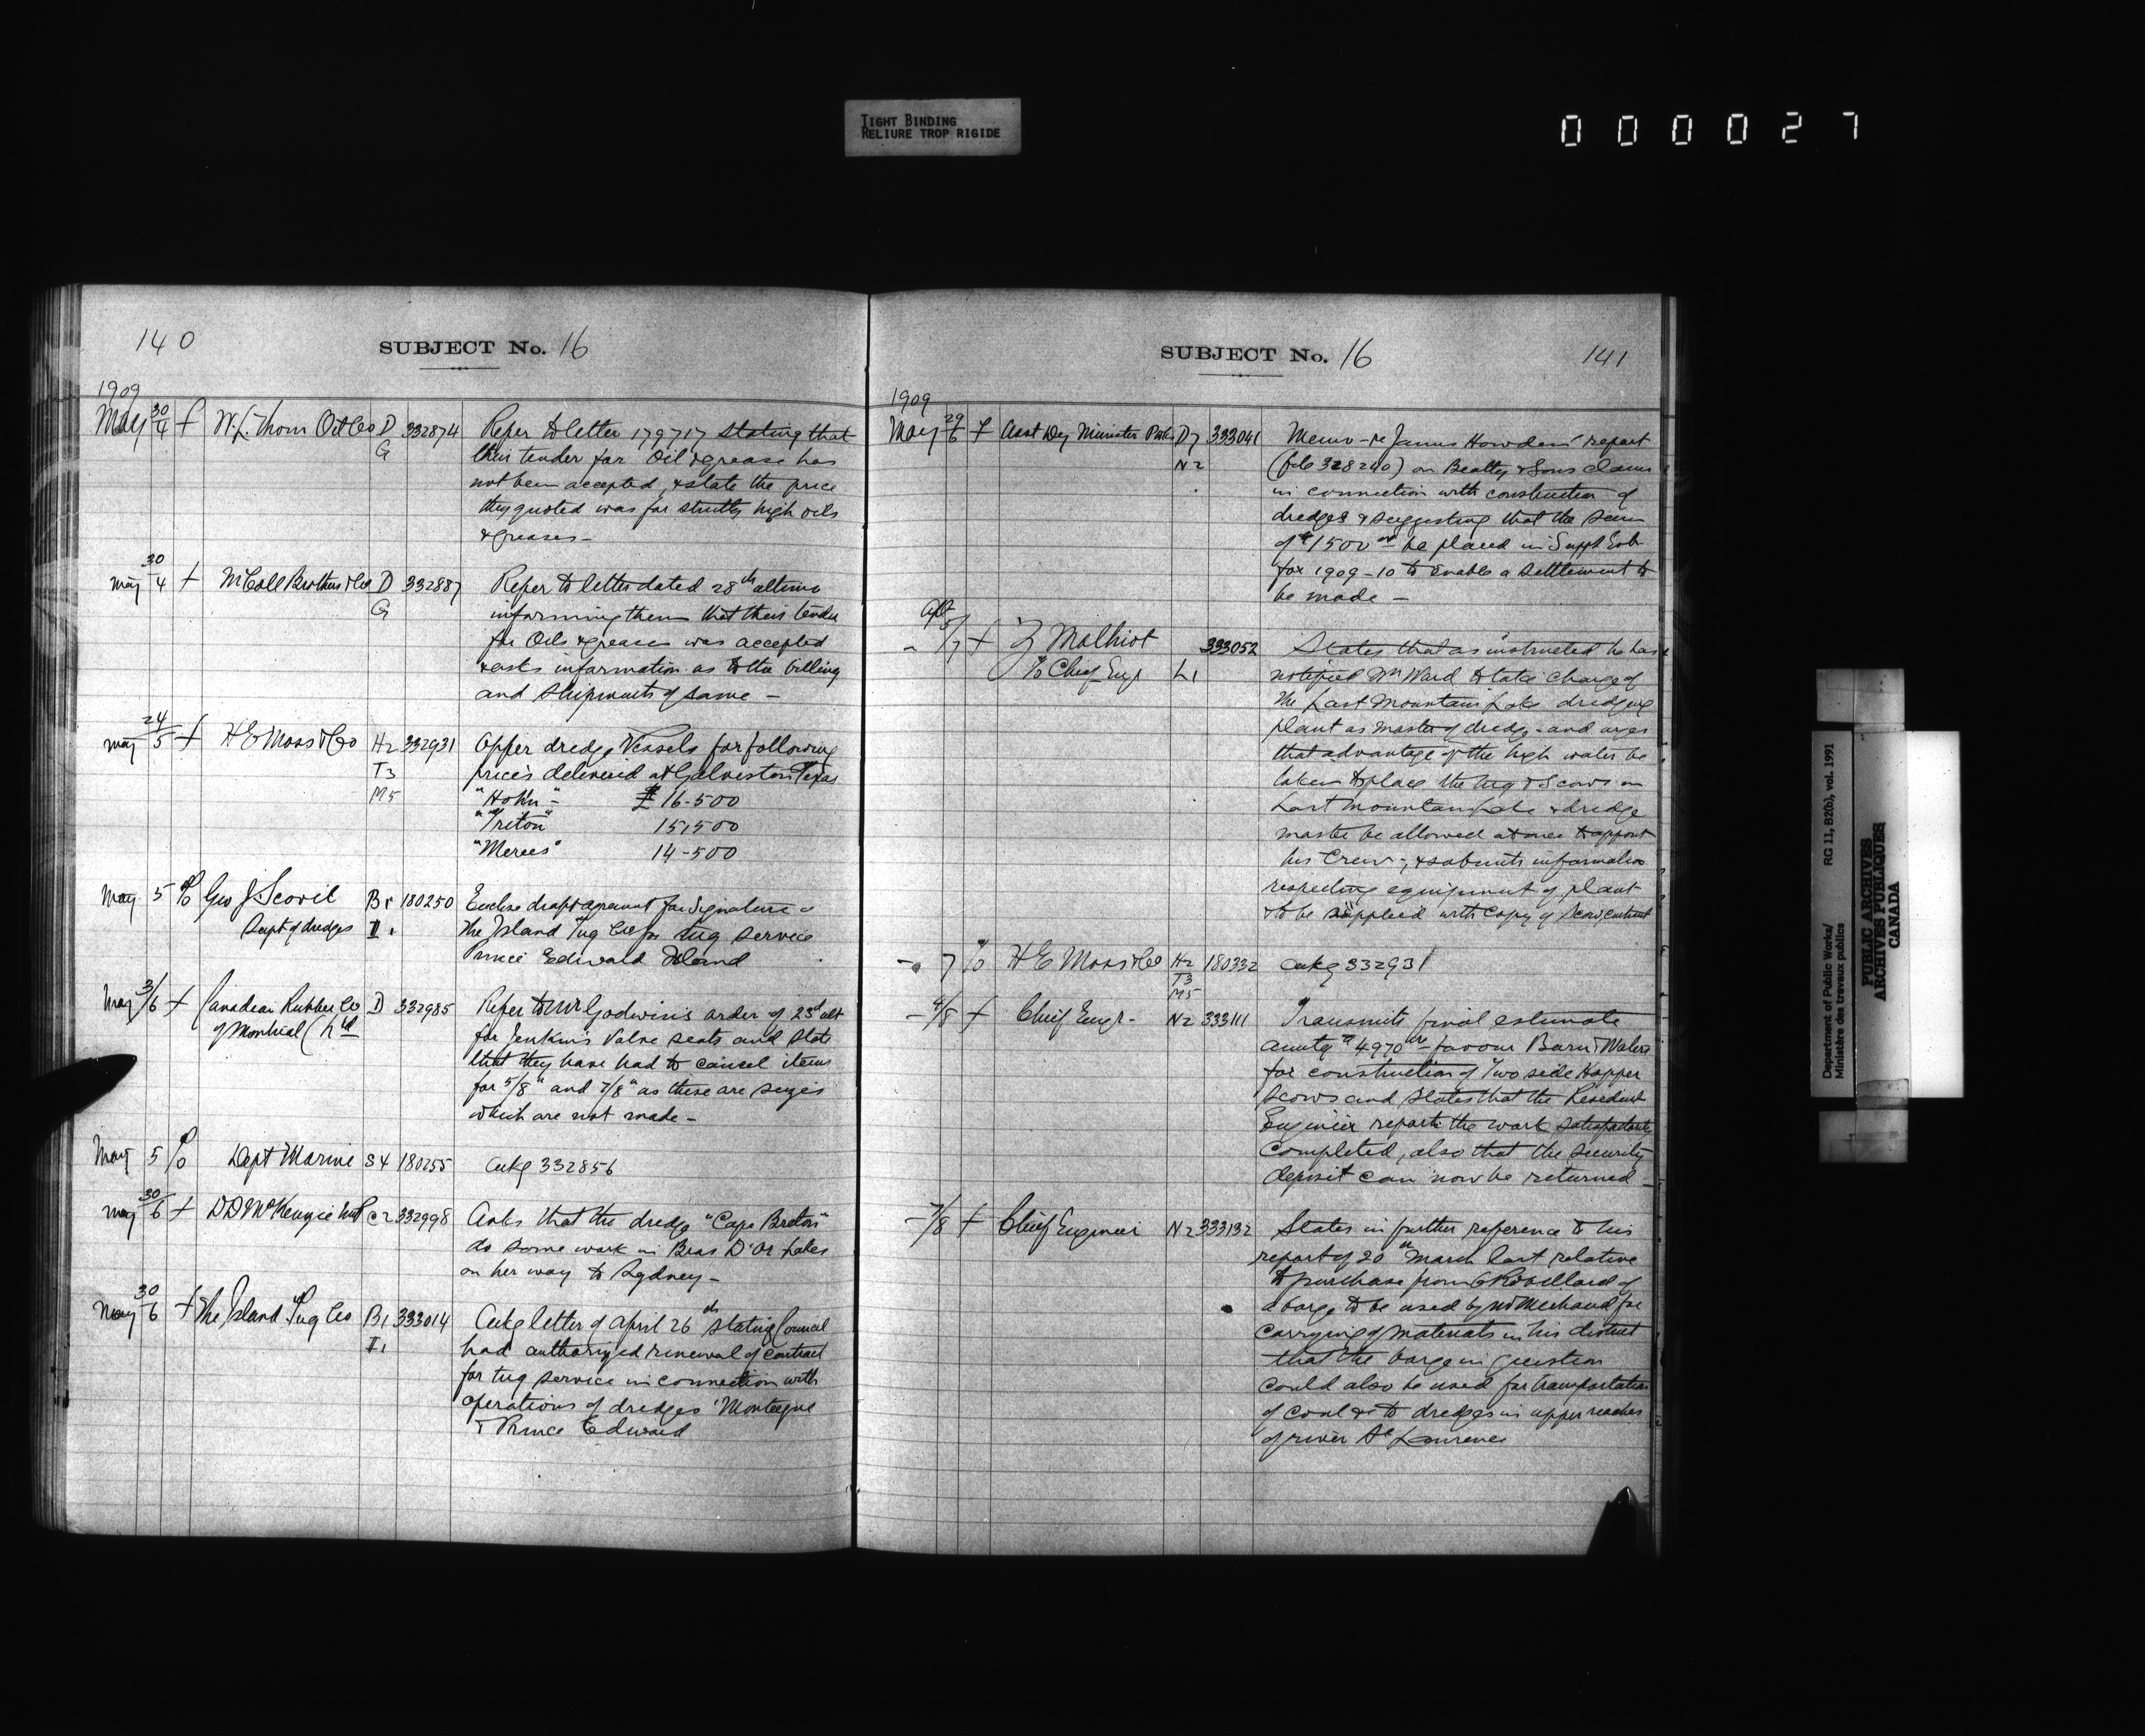 TIGHT BINDING
RELIURE TROP RIGIDE
000027
140
SUBJECT No. 16
1909
May 30/4 f W.L. Thom Oil Co D G 332874 Refer to letter 179717 stating that
their tender for Oil & grease has
not been accepted, & state the price
they quoted was for strictly high oils
& greases –
May 30/4 f McColl Brothers & Co D G 332887 Refer to letter dated 28th ultimo
informing them that their tender
for Oils & greases was accepted
& asks information as to the billing
and shipments of same –
May 24/5 f H E Moss & Co H2 T3 M5 332931 Offer dredge Vessels for following
prices delivered at Galveston Texas
"Hohn" – £ 16-500
"Triton" 15,500
"Merces" 14-500
May 5 % Geo J. Scovil Supt of dredges B1 I1 180250 Enclose draft agreemnt for signature
The Island Tug Co for tug service
Prince Edward Island
May 3/6 f Canadian Rubber Co of Montreal Ltd D 332985 Refer to Mr Godwin's order of 23rd ult
for Jenkins Valve seats and state
that they have had to cancel items
for 5/8" and 7/8" as these are sizes
which are not made –
May 5 % Dept Marine S4 180255 ackg 332856
May 30/6 f D D McKenzie C2 332998 Asks that the dredge "Cape Breton"
do some work in Bras D'Or Lakes
on her way to Sydney –
May 30/6 f The Island Tug Co B1 I1 333014 Ackg letter of April 26th stating Council
had authorized renewal of contract
for tug service in connection with
operations of dredges 'Montague
& Prince Edward
SUBJECT No. 16
141
1909
May 29/6 f Asst Dey Minister D7 N2 333041 Memo – re James Howden' report
(file 328240) on Beatty & Sons claims
in connection with construction of
dredges & suggesting that the sum
of $1500 be placed in Suppl Ests
for 1909-10 to enable a settlement to
be made –
– /7 f Z Malhiot % Chief Eng L1 333052 States that as instructed he has
notified Wm Ward to take charge of
the Last Mountain Lake dredging
plant as master of dredge – and urges
that advantage of the high water be
taken to place the tug & Scows in
Last Mountain Lake & dredge
master be allowed at once to appoint
his Crew –, & submits information
respecting equipment of plant
& to be supplied with copy of Scow contract
– 7 % H E Moss & Co H2 T3 M5 180332 ackg 332931
– 4/8 f Chief Engr – N2 333111 Transmits final estimate
amntg $4970 favour
for construction of Two side Hopper
Scows and states that the Resident
Engineer reports the work satisfactorily
completed, also that the security
deposit can now be returned –
– 7/8 f Chief Engineer N2 333132 States in further reference to his
report of 20th March last relative
to purchase from Robillard of
a barge to be used by for
carrying of materials in his district
that the barge in question
could also be used for transportation
of coal &c to dredges in upper reaches
of river St Lawrence
Department of Public Works/
Ministère des travaux publics
RG 11, B2(b), vol. 1991
PUBLIC ARCHIVES
ARCHIVES PUBLIQUES
CANADA